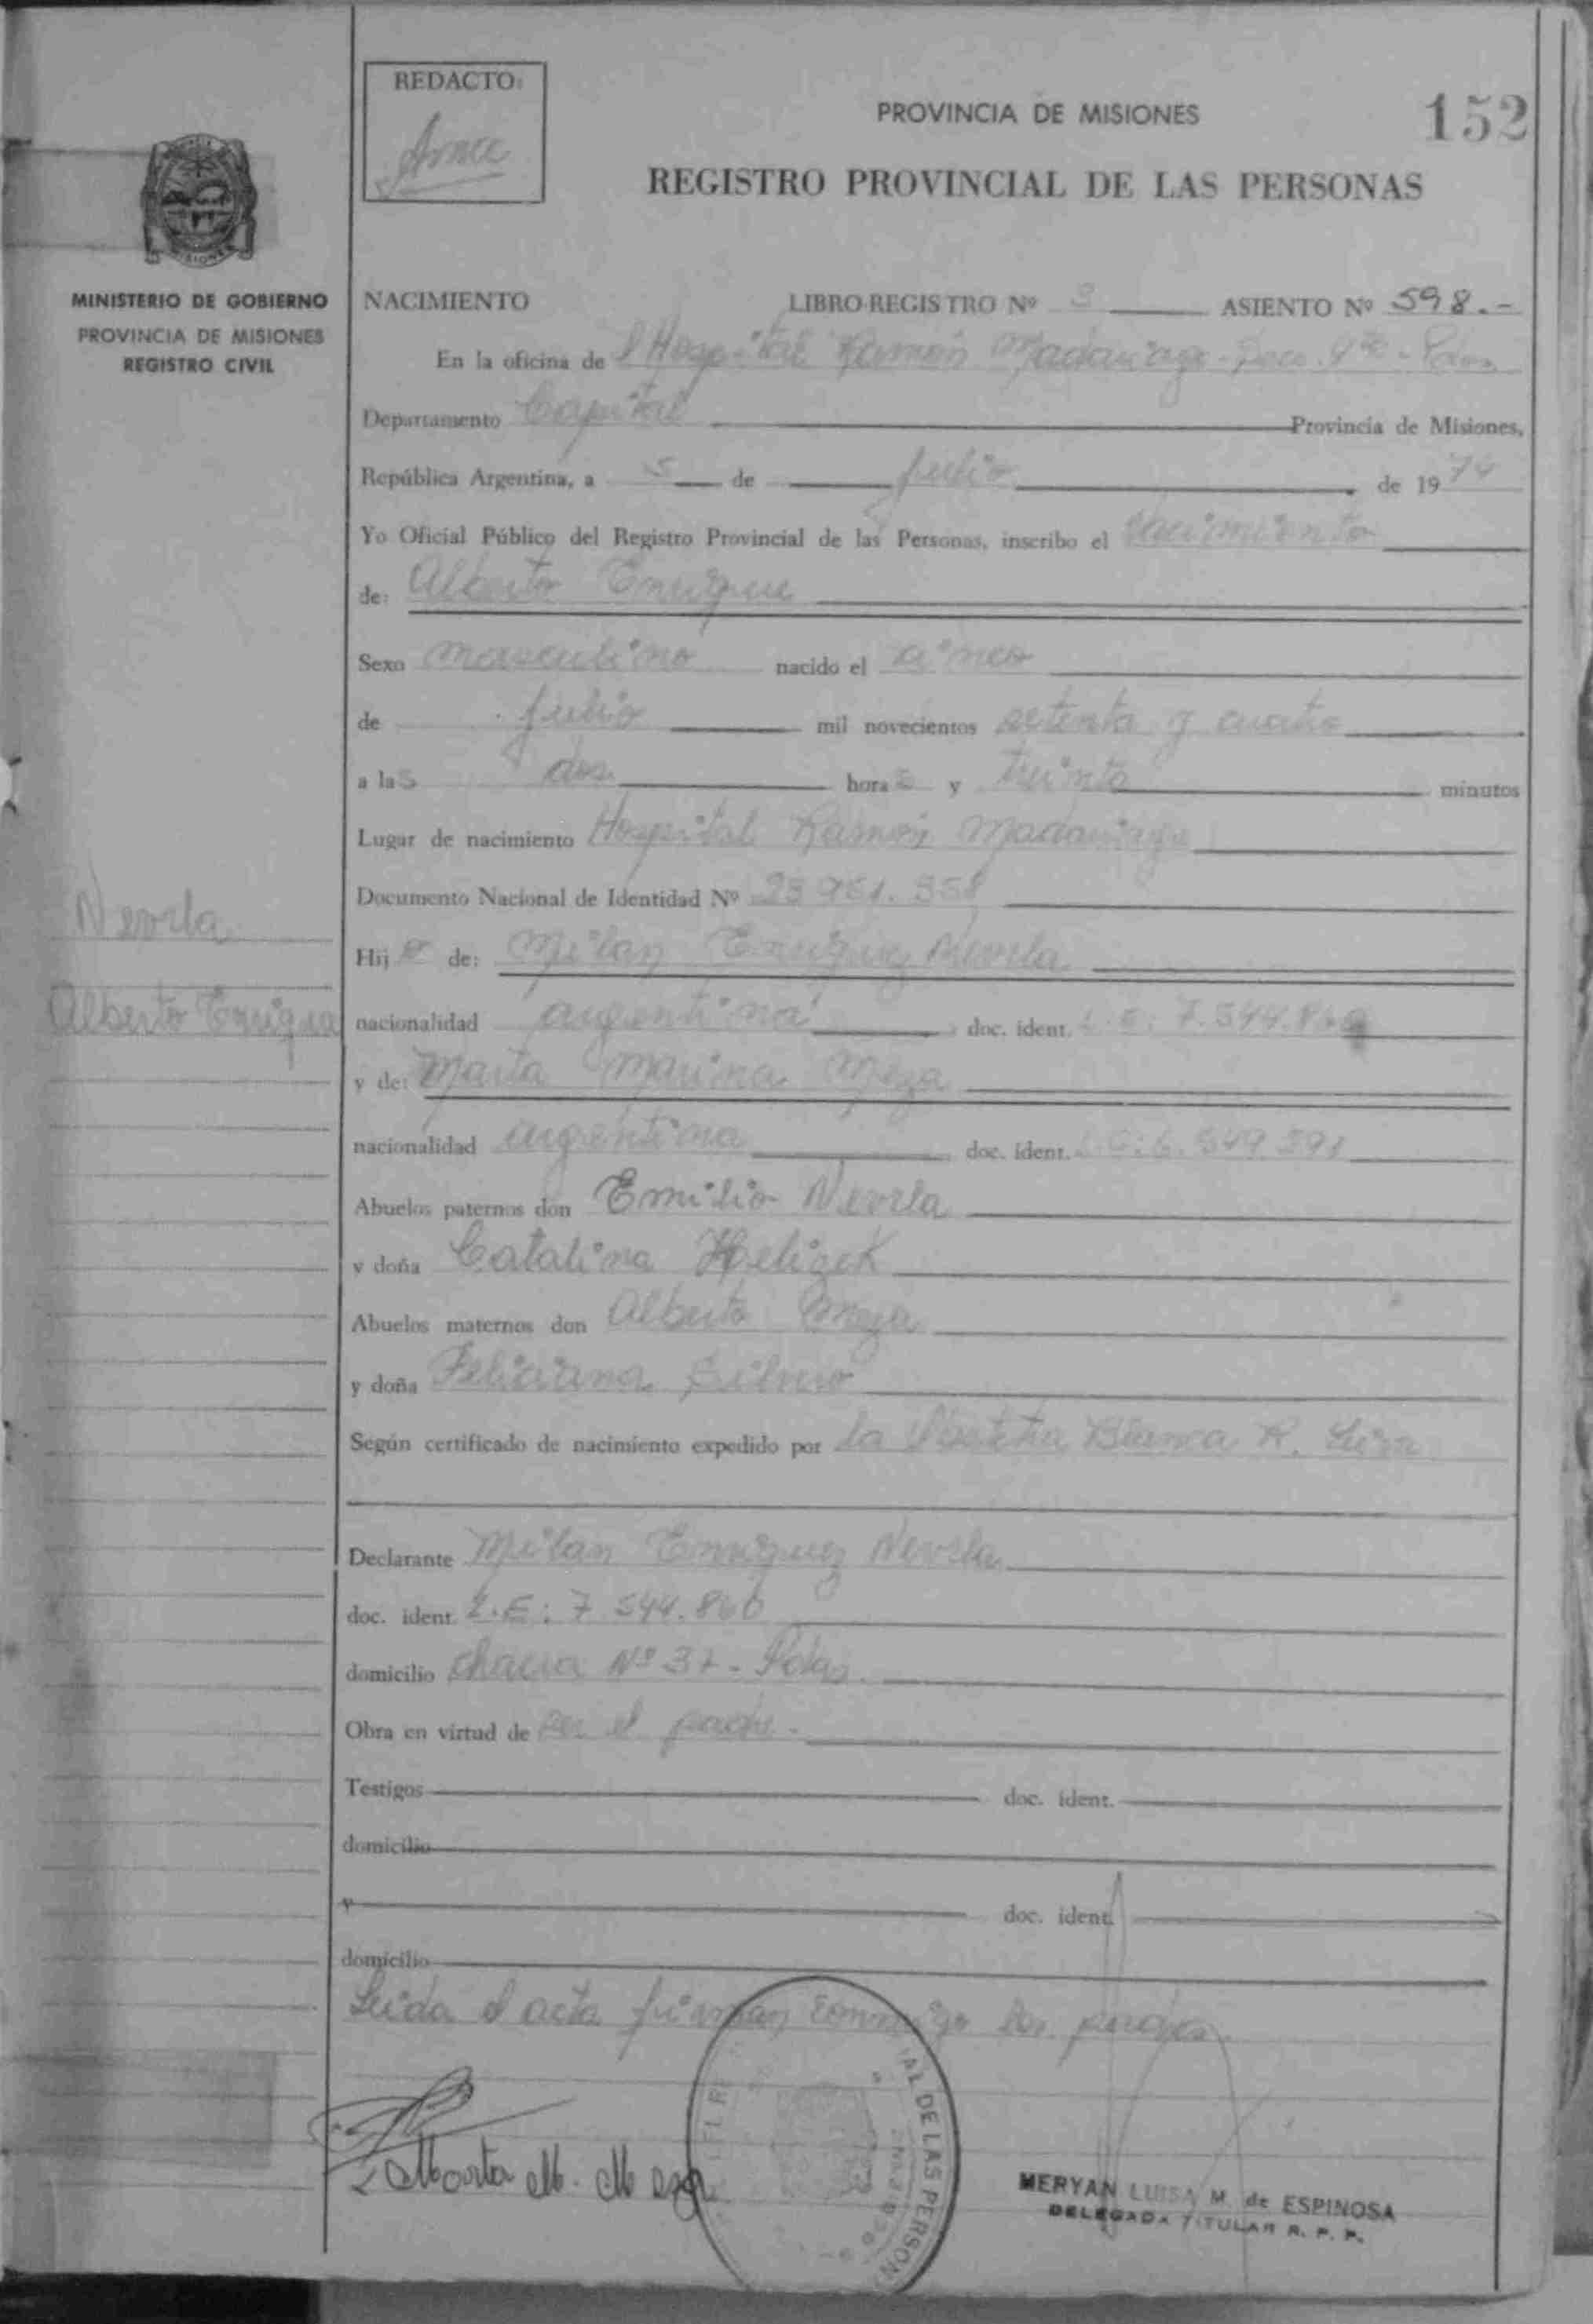 REDACTO:
PROVINCIA DE MISIONES
152
REGISTRO PROVINCIAL DE LAS PERSONAS
MINISTERIO DE GOBIERNO
PROVINCIA DE MISIONES
REGISTRO CIVIL
NACIMIENTO LIBRO REGISTRO Nº 3 ASIENTO Nº 598.-
En la oficina de l Hospital Ramón Madariaga
Departamento Capital Provincia de Misiones,
República Argentina, a 5 de julio de 1974
Yo Oficial Público del Registro Provincial de las Personas, inscribo el nacimiento
de: Alberto Enrique
Sexo masculino nacido el cinco
de julio mil novecientos setenta y cuatro
a las dos horas y treinta minutos
Lugar de nacimiento Hospital Ramón Madariaga
Documento Nacional de Identidad Nº
Nevrla
Hijo de: Milan Enriquez Nevrla
Alberto Enrique
nacionalidad argentina doc. ident. L.E: 7.544.860
y de: Marta Marina Meza
nacionalidad argentina doc. ident.
Abuelos paternos don Emilio Nevrla
y doña Catalina
Abuelos maternos don Alberto Meza
y doña Feliciana
Según certificado de nacimiento expedido por la Partera Blanca R.
Declarante Milan Enriquez Nevrla
doc. ident. L.E: 7 544.860
domicilio chacra Nº 37 - Pdas.
Obra en virtud de ser el padre.-
Testigos doc. ident.
domicilio
y doc. ident.
domicilio
Leida el acta firman conmigo los padres.
Marta M. Meza
AL DE LAS PERSON
MERYAN LUISA M. de ESPINOSA
DELEGADA TITULAR R. P. P.